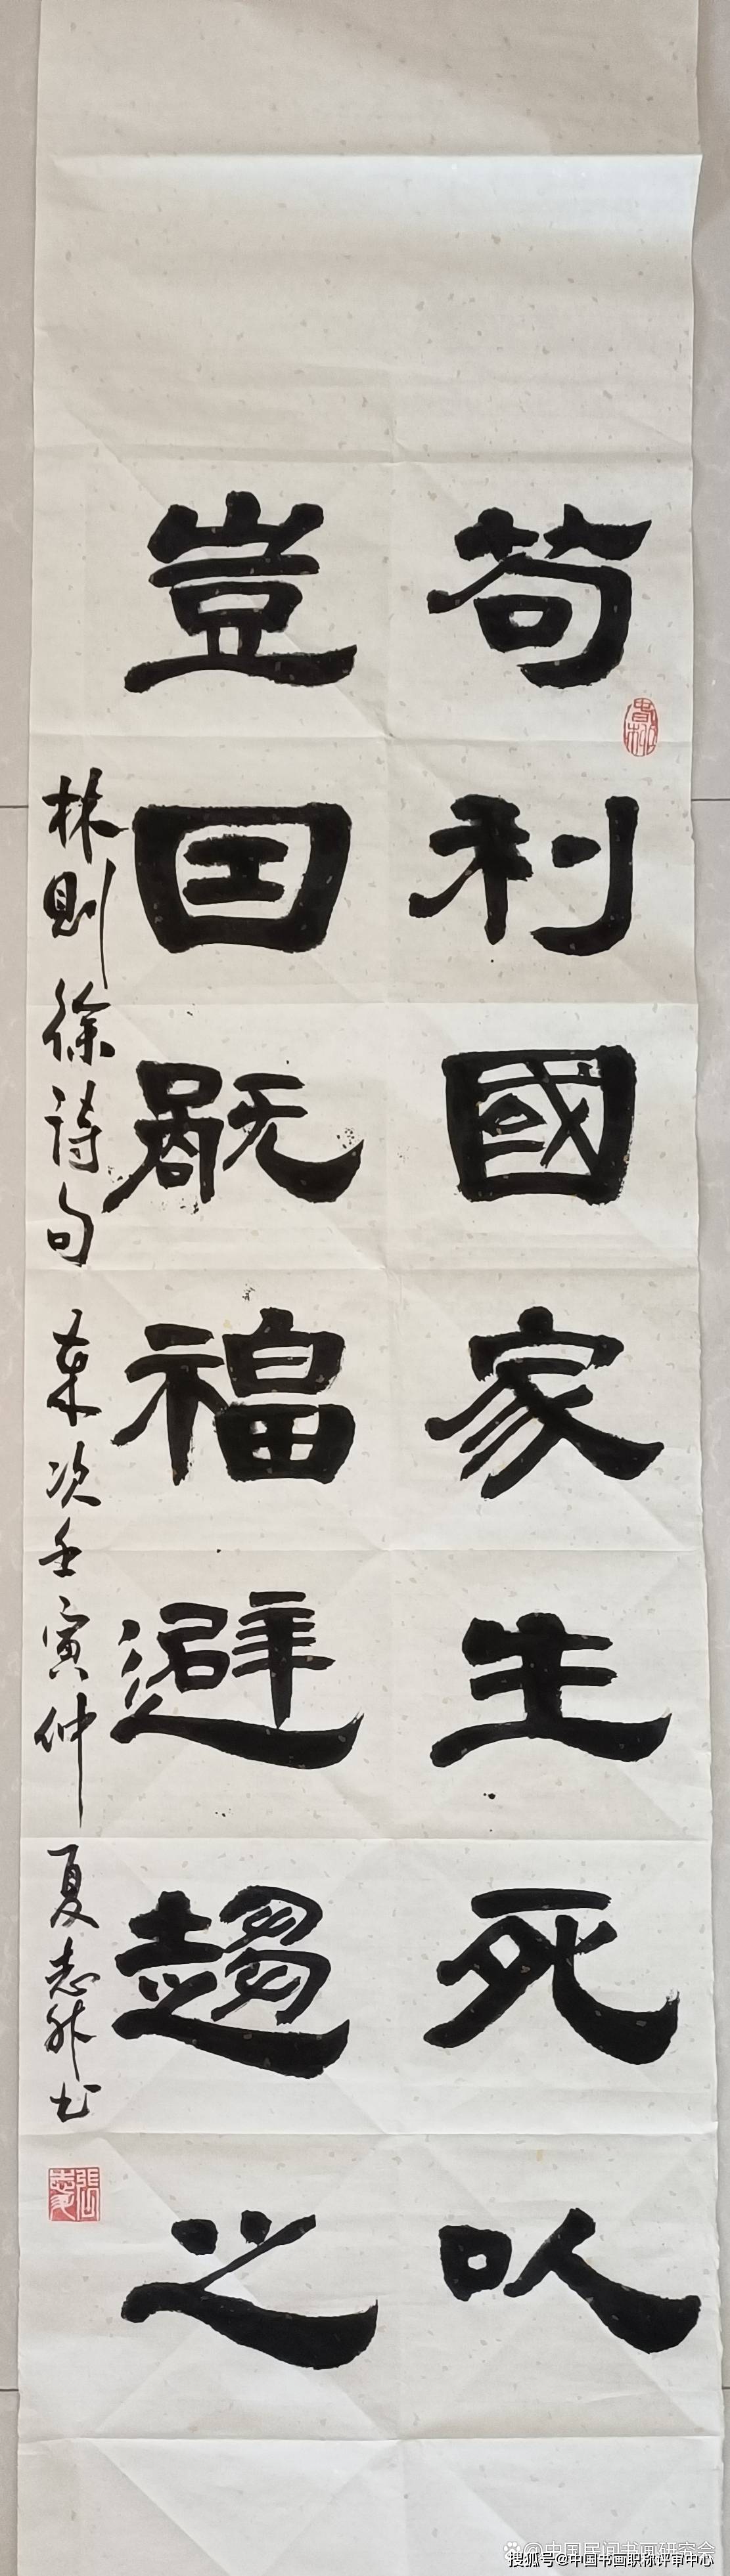 苟利國家生死以
豈因旤福避趨之
林則徐诗句 次壬寅仲夏志书
@中国民间书画研究会
搜狐号@中国书画职称评审中心